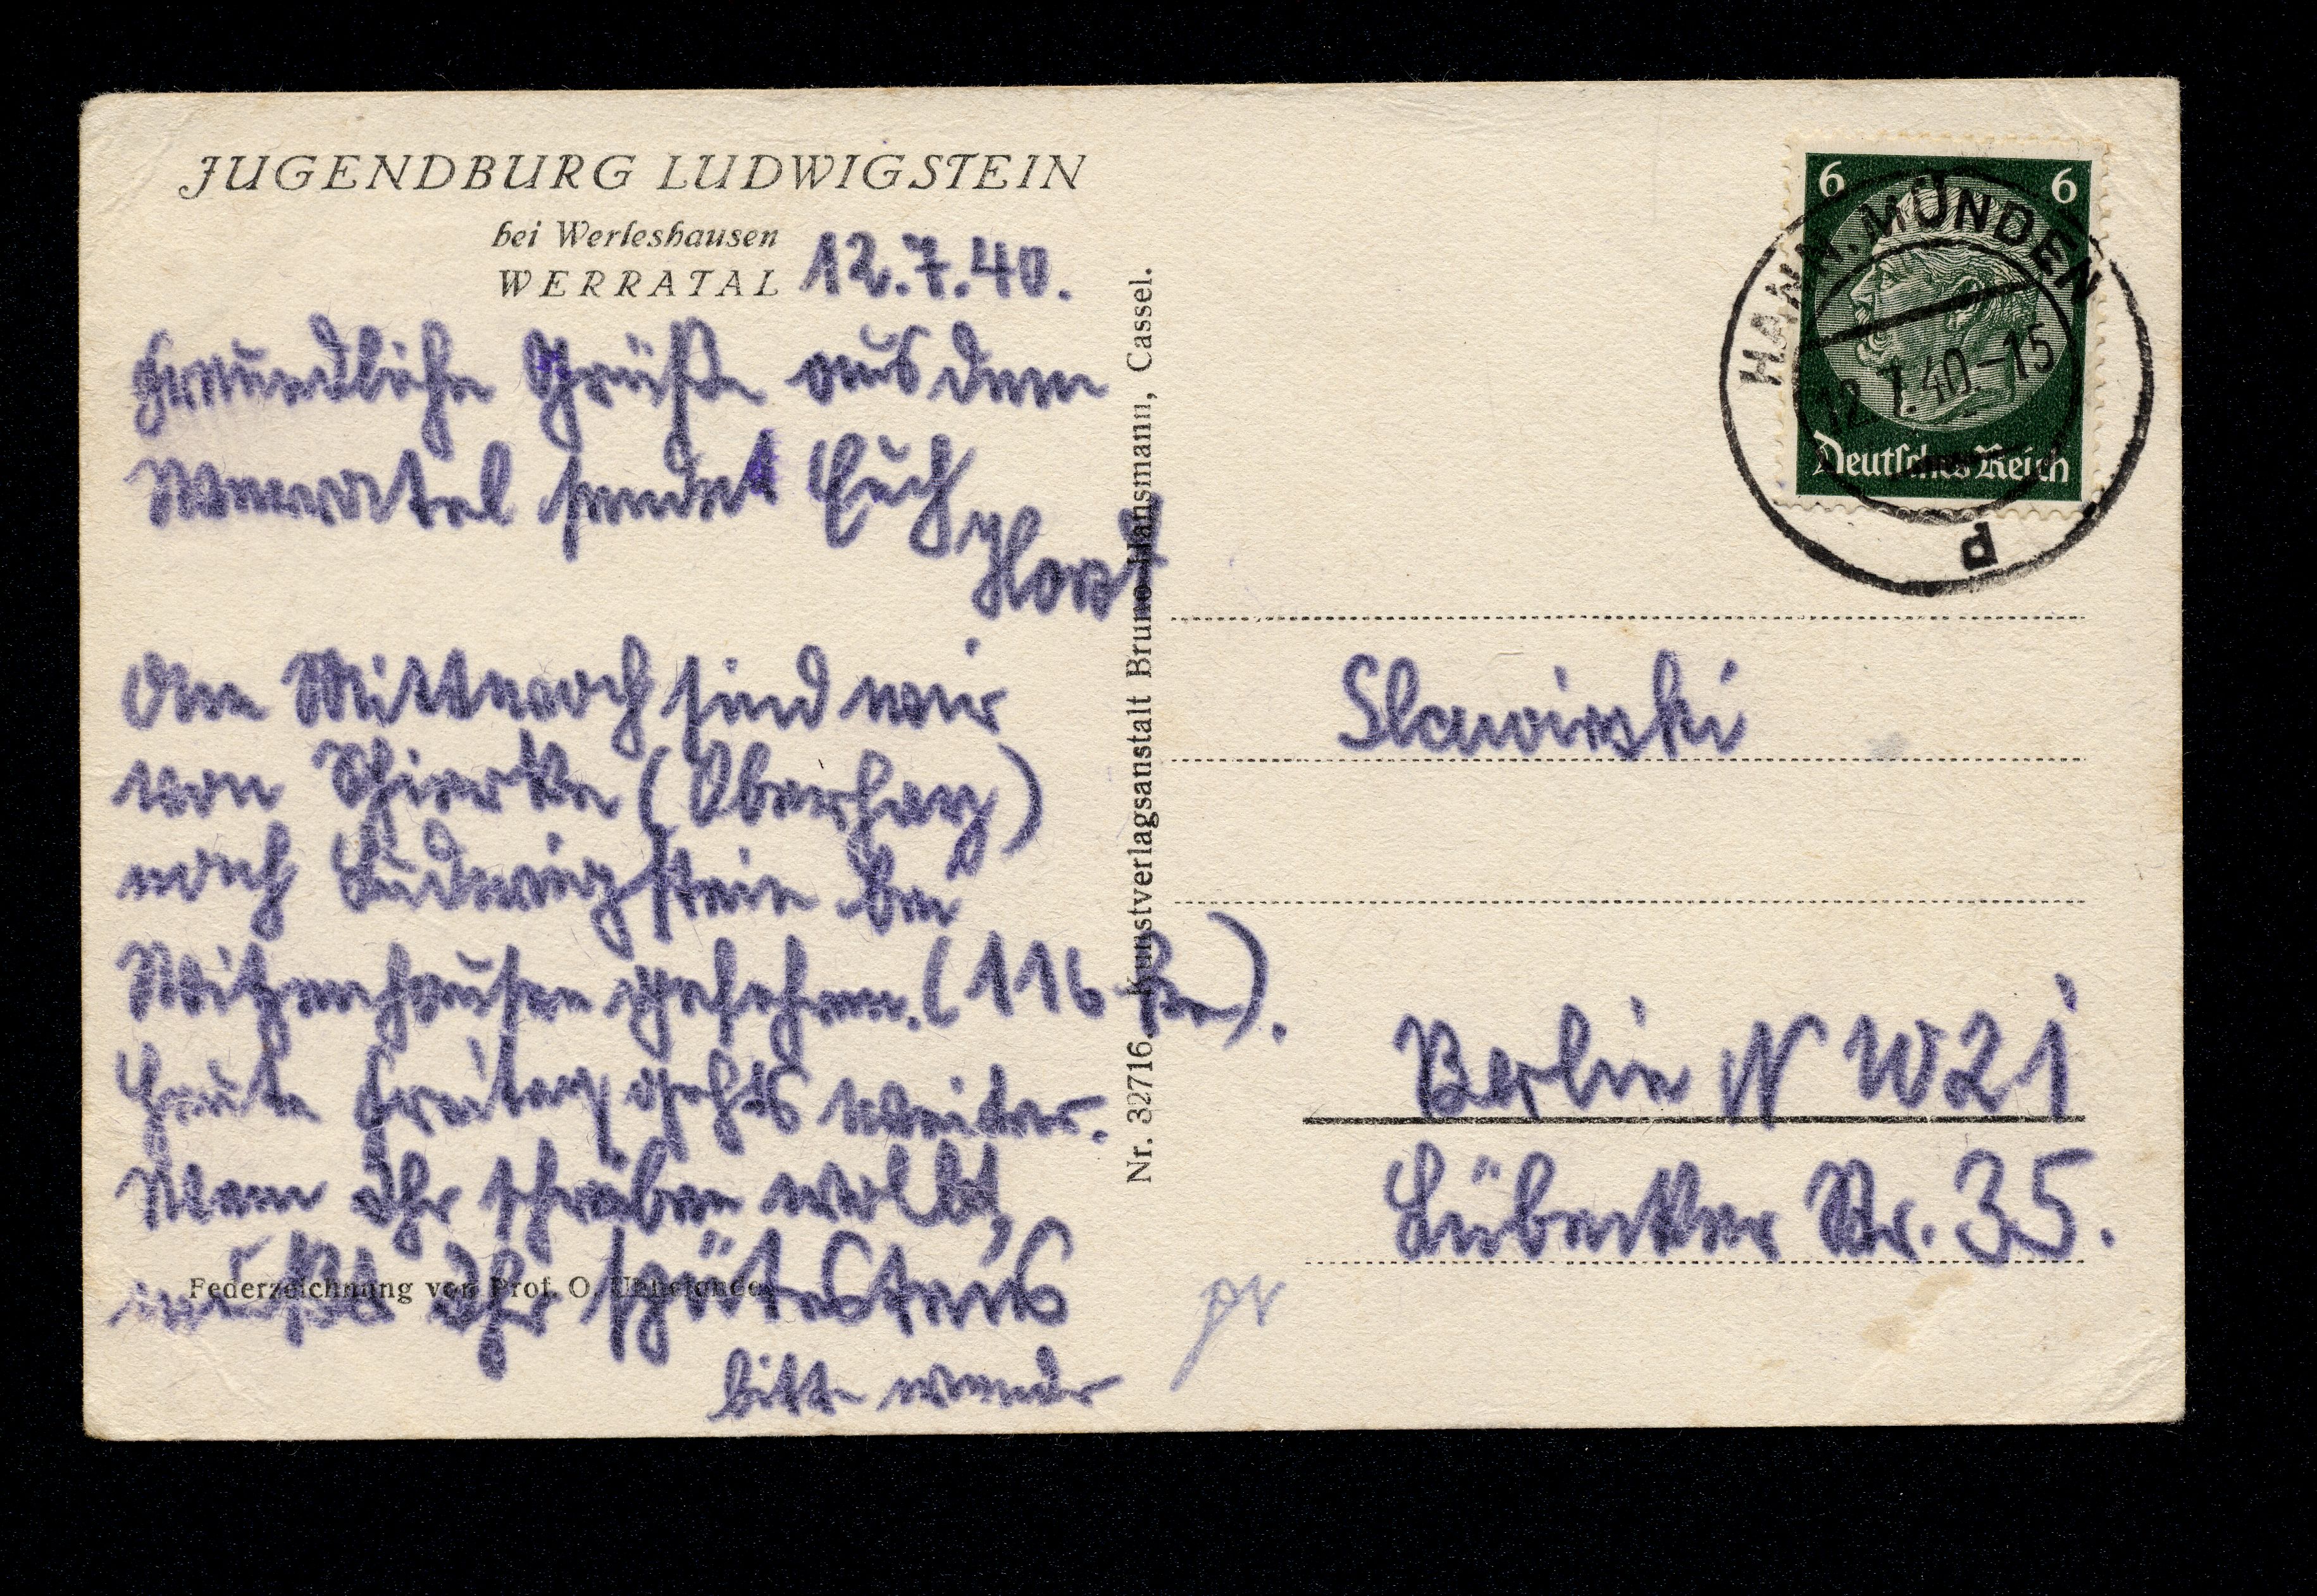 JUGENDBURG LUDWIGSTEIN
bei Werleshausen
WERRATAL 12.7.40.
Freundliche Grüße aus dem
Werratal sendet Euch
Horst
Am Mittwoch sind wir
von Schierke (Oberharz)
nach Ludwigstein bei
Witzenhausen gefahren. (116 km).
Heute Freitag gehts weiter.
Wenn Ihr schreiben wollt,
müßt Ihr spätestens
bitte wenden
Federzeichnung von Prof. O. Ubbelohde
Nr. 32716 Kunstverlagsanstalt Bruno Hansmann, Cassel.
6 6
Deutsches Reich
HANN. MÜNDEN
12.7.40.-15
d
Slawinski
Berlin NW21
Lübecker Str. 35.